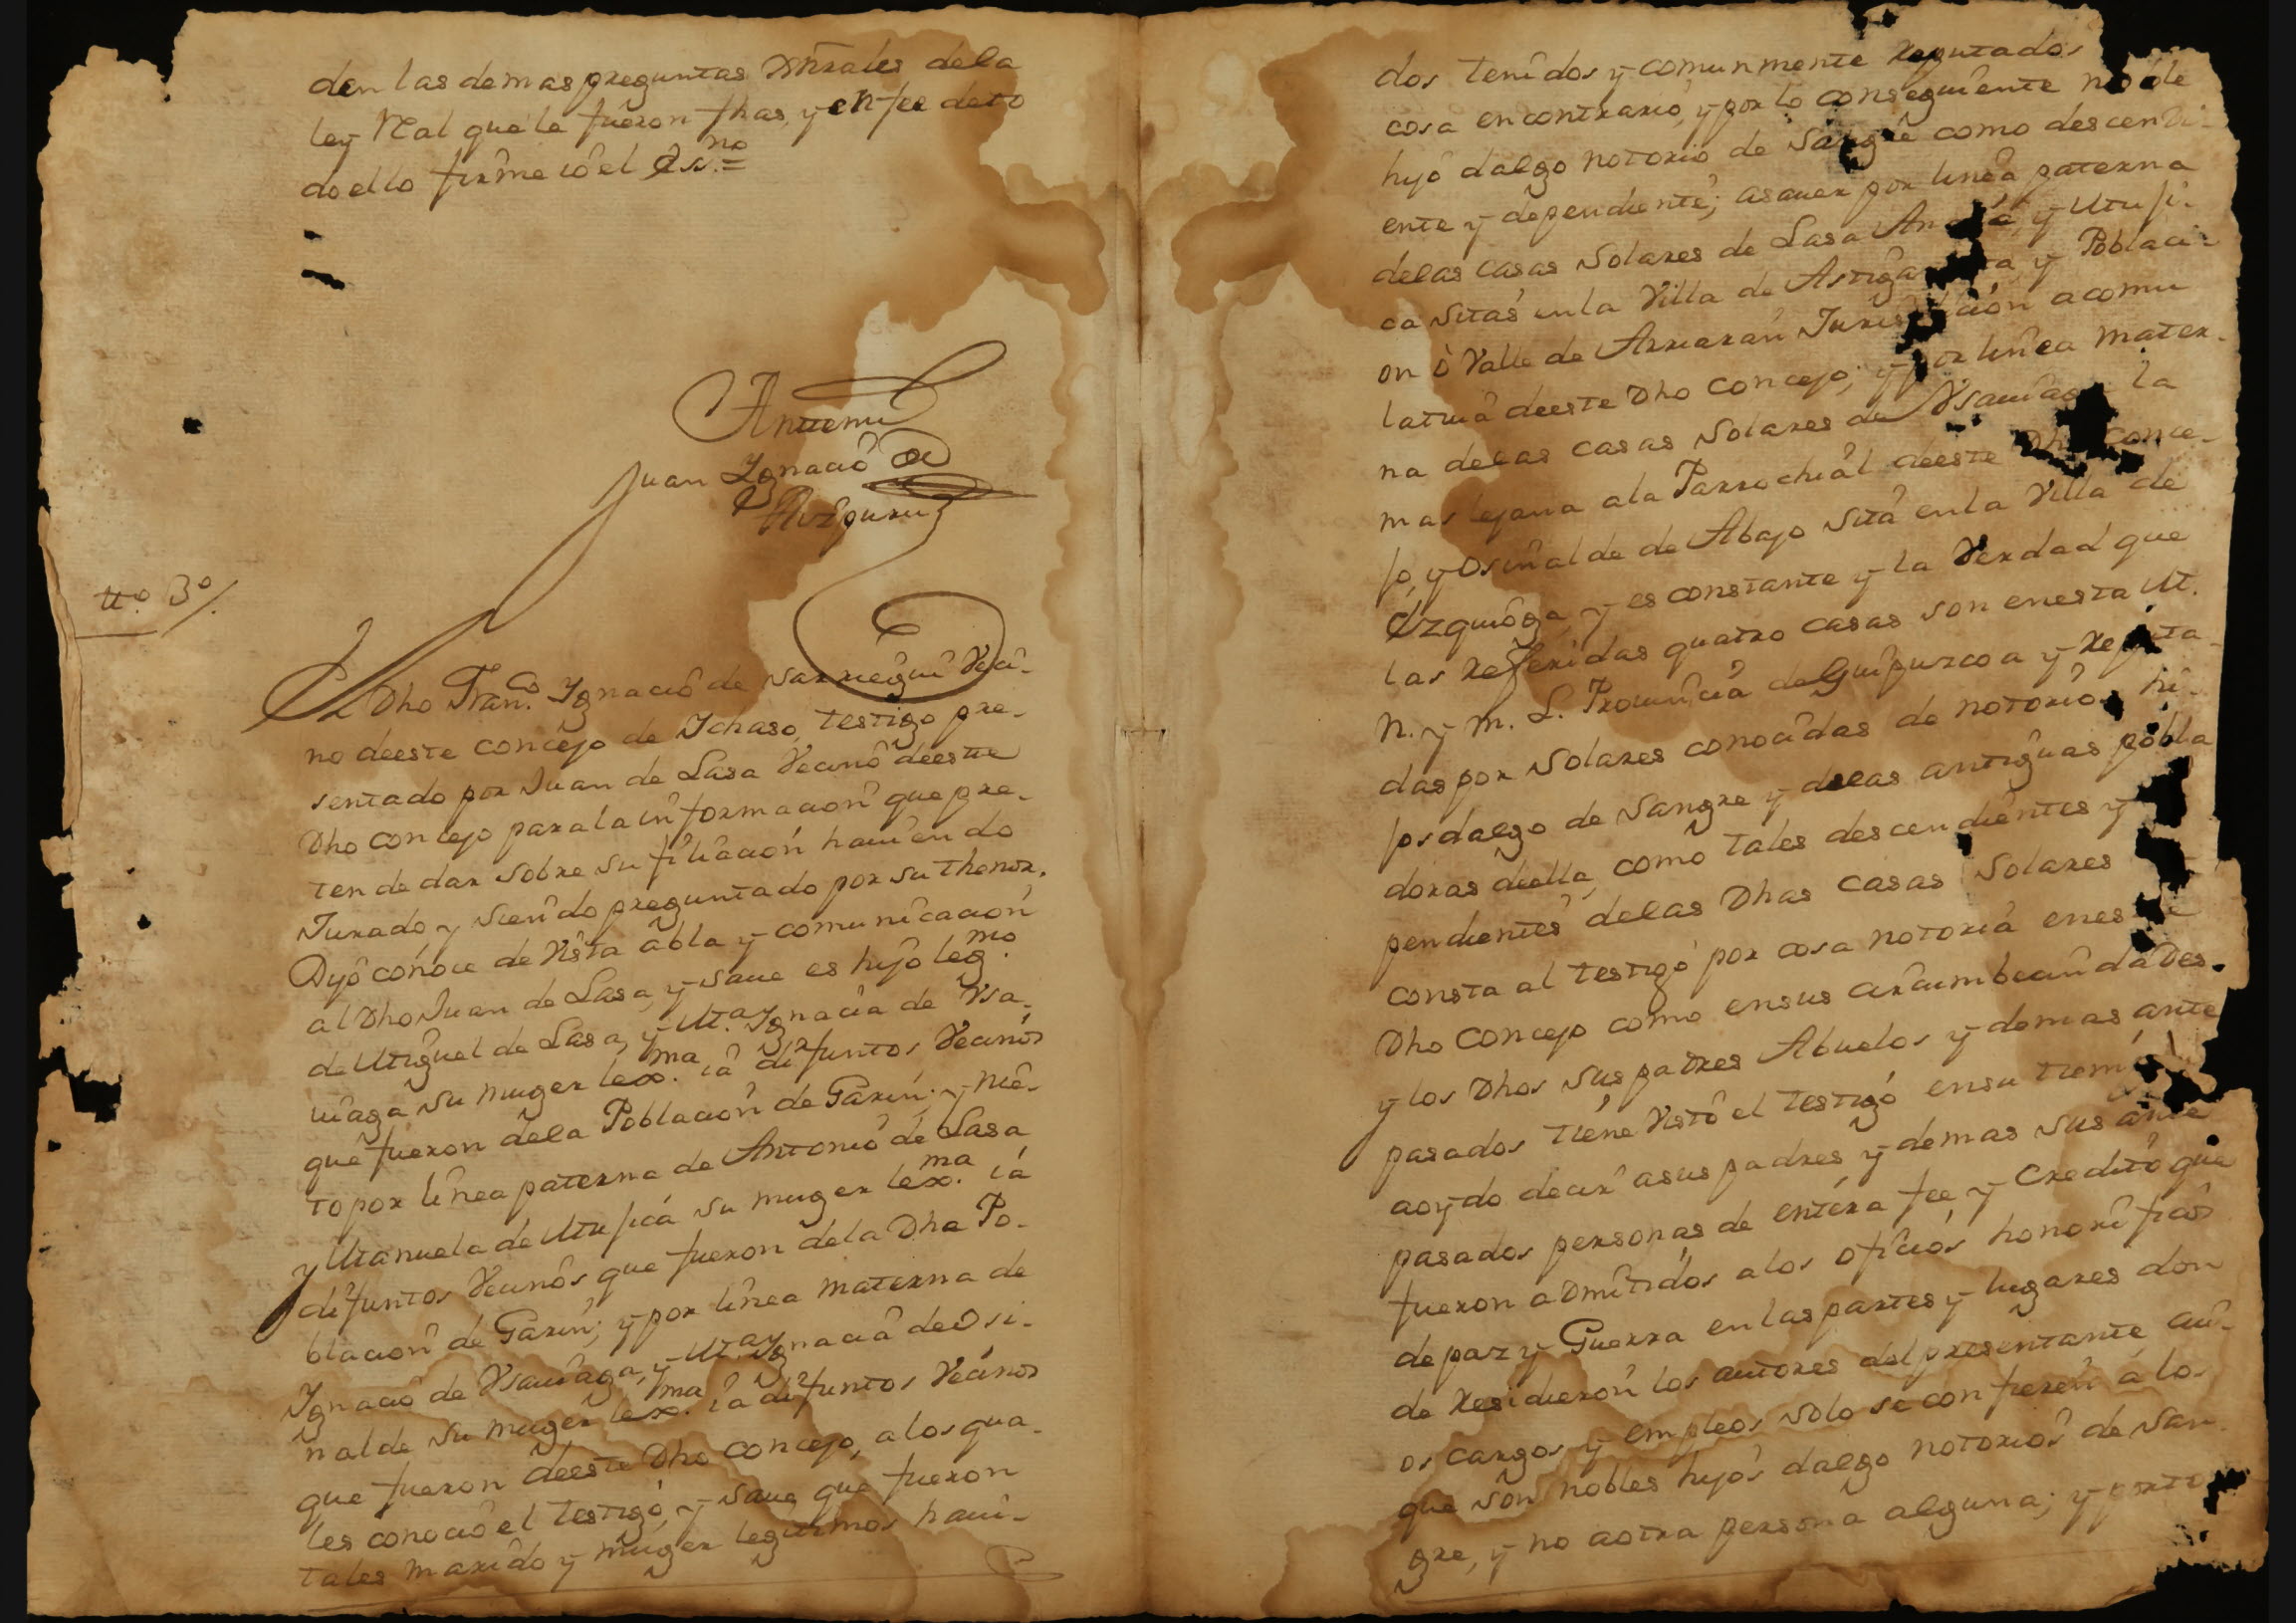 den las demas preguntas Grrales dela
ley Real que le fueron fhas, y en fee de to
do ello firme io el Ess.no =
Antemi
Juan Ygnacio de
Aizpuru
tt.o 3.o
El Dho Fran.co Ygnacio de Sarriegui Veci-
no deeste concejo de Ichaso, testigo pre-
sentado por Juan de Lasa Vecino deeste
Dho concejo para la informacion que pre-
tende dar sobre su filiacion haviendo
Jurado y siendo preguntado por su thenor.
Dijo conoce de Vista abla y comunicacion
al Dho Juan de Lasa, y save es hijo leg.mo
de Miguel de Lasa, y M.a Ygnacia de Ysa-
uiaga su muger lex.ma ia difuntos Vecinos
que fueron dela Poblacion de Garin; y nie-
to por linea paterna de Antonio de Lasa
y Manuela de Mujica su muger lex.ma ia
difuntos Vecinos que fueron dela Dha Po-
blacion de Garin; y por linea materna de
Ygnacio de Ysauiaga, y M.a Ygnacia de Osi-
nalde su muger lex.ma ia difuntos Vecinos
que fueron deeste Dho concejo, alos qua-
les conocio el testigo, y save que fueron
tales marido y muger legitimos havi-
dos tenidos y comunmente reputados
cosa en contrario, y por lo conseguiente noble
hijo dalgo notorio de Sangre como descendi-
ente y dependiente; asauer por linea paterna
delas casas Solares de Lasa y Muji-
ca sitas en la Villa de y Poblaci-
on o Valle de Arriaran Jurisdiccion acomu
latiua deeste Dho concejo; y por linea mater-
na delas casas Solares de Ysauiaga la
mas lejana ala Parrochial deeste Dho conce-
jo, y Osinalde de Abajo sita en la Villa de
Ezquioga, y es constante y la Verdad que
las referidas quatro casas son en esta M.
N. y M. L. Provincia de Guipuzcoa y reputa-
das por Solares conocidas de notorios hi-
josdalgo de Sangre y delas antiguas pobla
doras deella, como tales descendientes y
pendientes delas Dhas casas Solares
consta al testigo por cosa notoria en este
Dho concejo como en sus circumbecindades.
y los Dhos sus padres Abuelos y demas ante
pasados tiene Visto el testigo en su tiempo
a oydo decir a sus padres y demas sus ante
pasados personas de entera fee, y credito que
fueron admitidos alos oficios honorificos
de paz y Guerra en las partes y lugares don
de residieron los autores del presentante, cui-
os cargos y empleos solo se confieren a los
que son nobles hijos dalgo notorios de San-
gre, y no a otra persona alguna; y por to